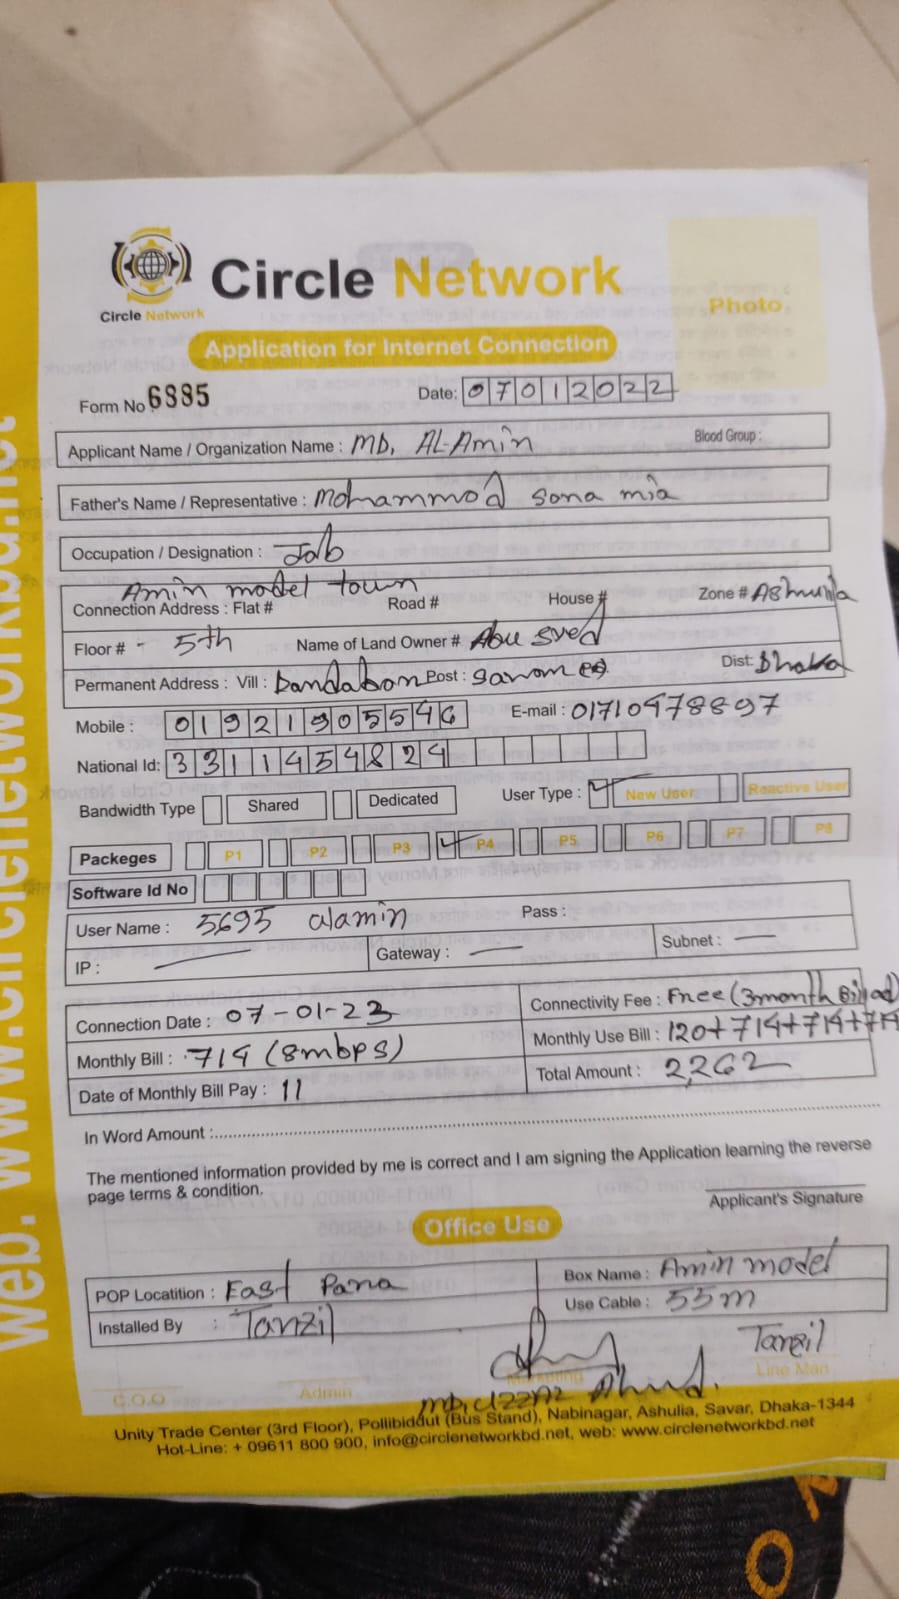 Circle Network
Circle Network
Photo
Application for Internet Connection
Form No. 6885
Date: 07012022
Applicant Name / Organization Name : MD. AL-Amin
Blood Group :
Father's Name / Representative : Mohammod sona mia
Occupation / Designation : Job
Amin model town
Connection Address : Flat # Road # House # Zone # Ashulia
Floor # - 5th Name of Land Owner # Abu syed
Permanent Address : Vill : Post : Dist: Dhaka
Mobile : 01921905546 E-mail : 01710978897
National Id: 3311454824
Bandwidth Type Shared Dedicated User Type : New User Reactive User
Packeges P1 P2 P3 P4 P5 P6 P7 P8
Software Id No
User Name : 5695 alamin Pass :
IP : — Gateway : — Subnet : —
Connection Date : 07-01-23 Connectivity Fee : Free (3month
Monthly Bill : 714 (8mbps) Monthly Use Bill : 120+714+714+714
Date of Monthly Bill Pay : 11 Total Amount : 2,262
In Word Amount :
The mentioned information provided by me is correct and I am signing the Application learning the reverse
page terms & condition.
Applicant's Signature
Office Use
POP Locatition : East Para Box Name : Amin model
Installed By : Tanzil Use Cable : 55m
Tanzil
C.O.O Admin Marketing Line Man
Unity Trade Center (3rd Floor), Pollibiddut (Bus Stand), Nabinagar, Ashulia, Savar, Dhaka-1344
Hot-Line: + 09611 800 900, info@circlenetworkbd.net, web: www.circlenetworkbd.net
web. www.circlenetworkbd.net